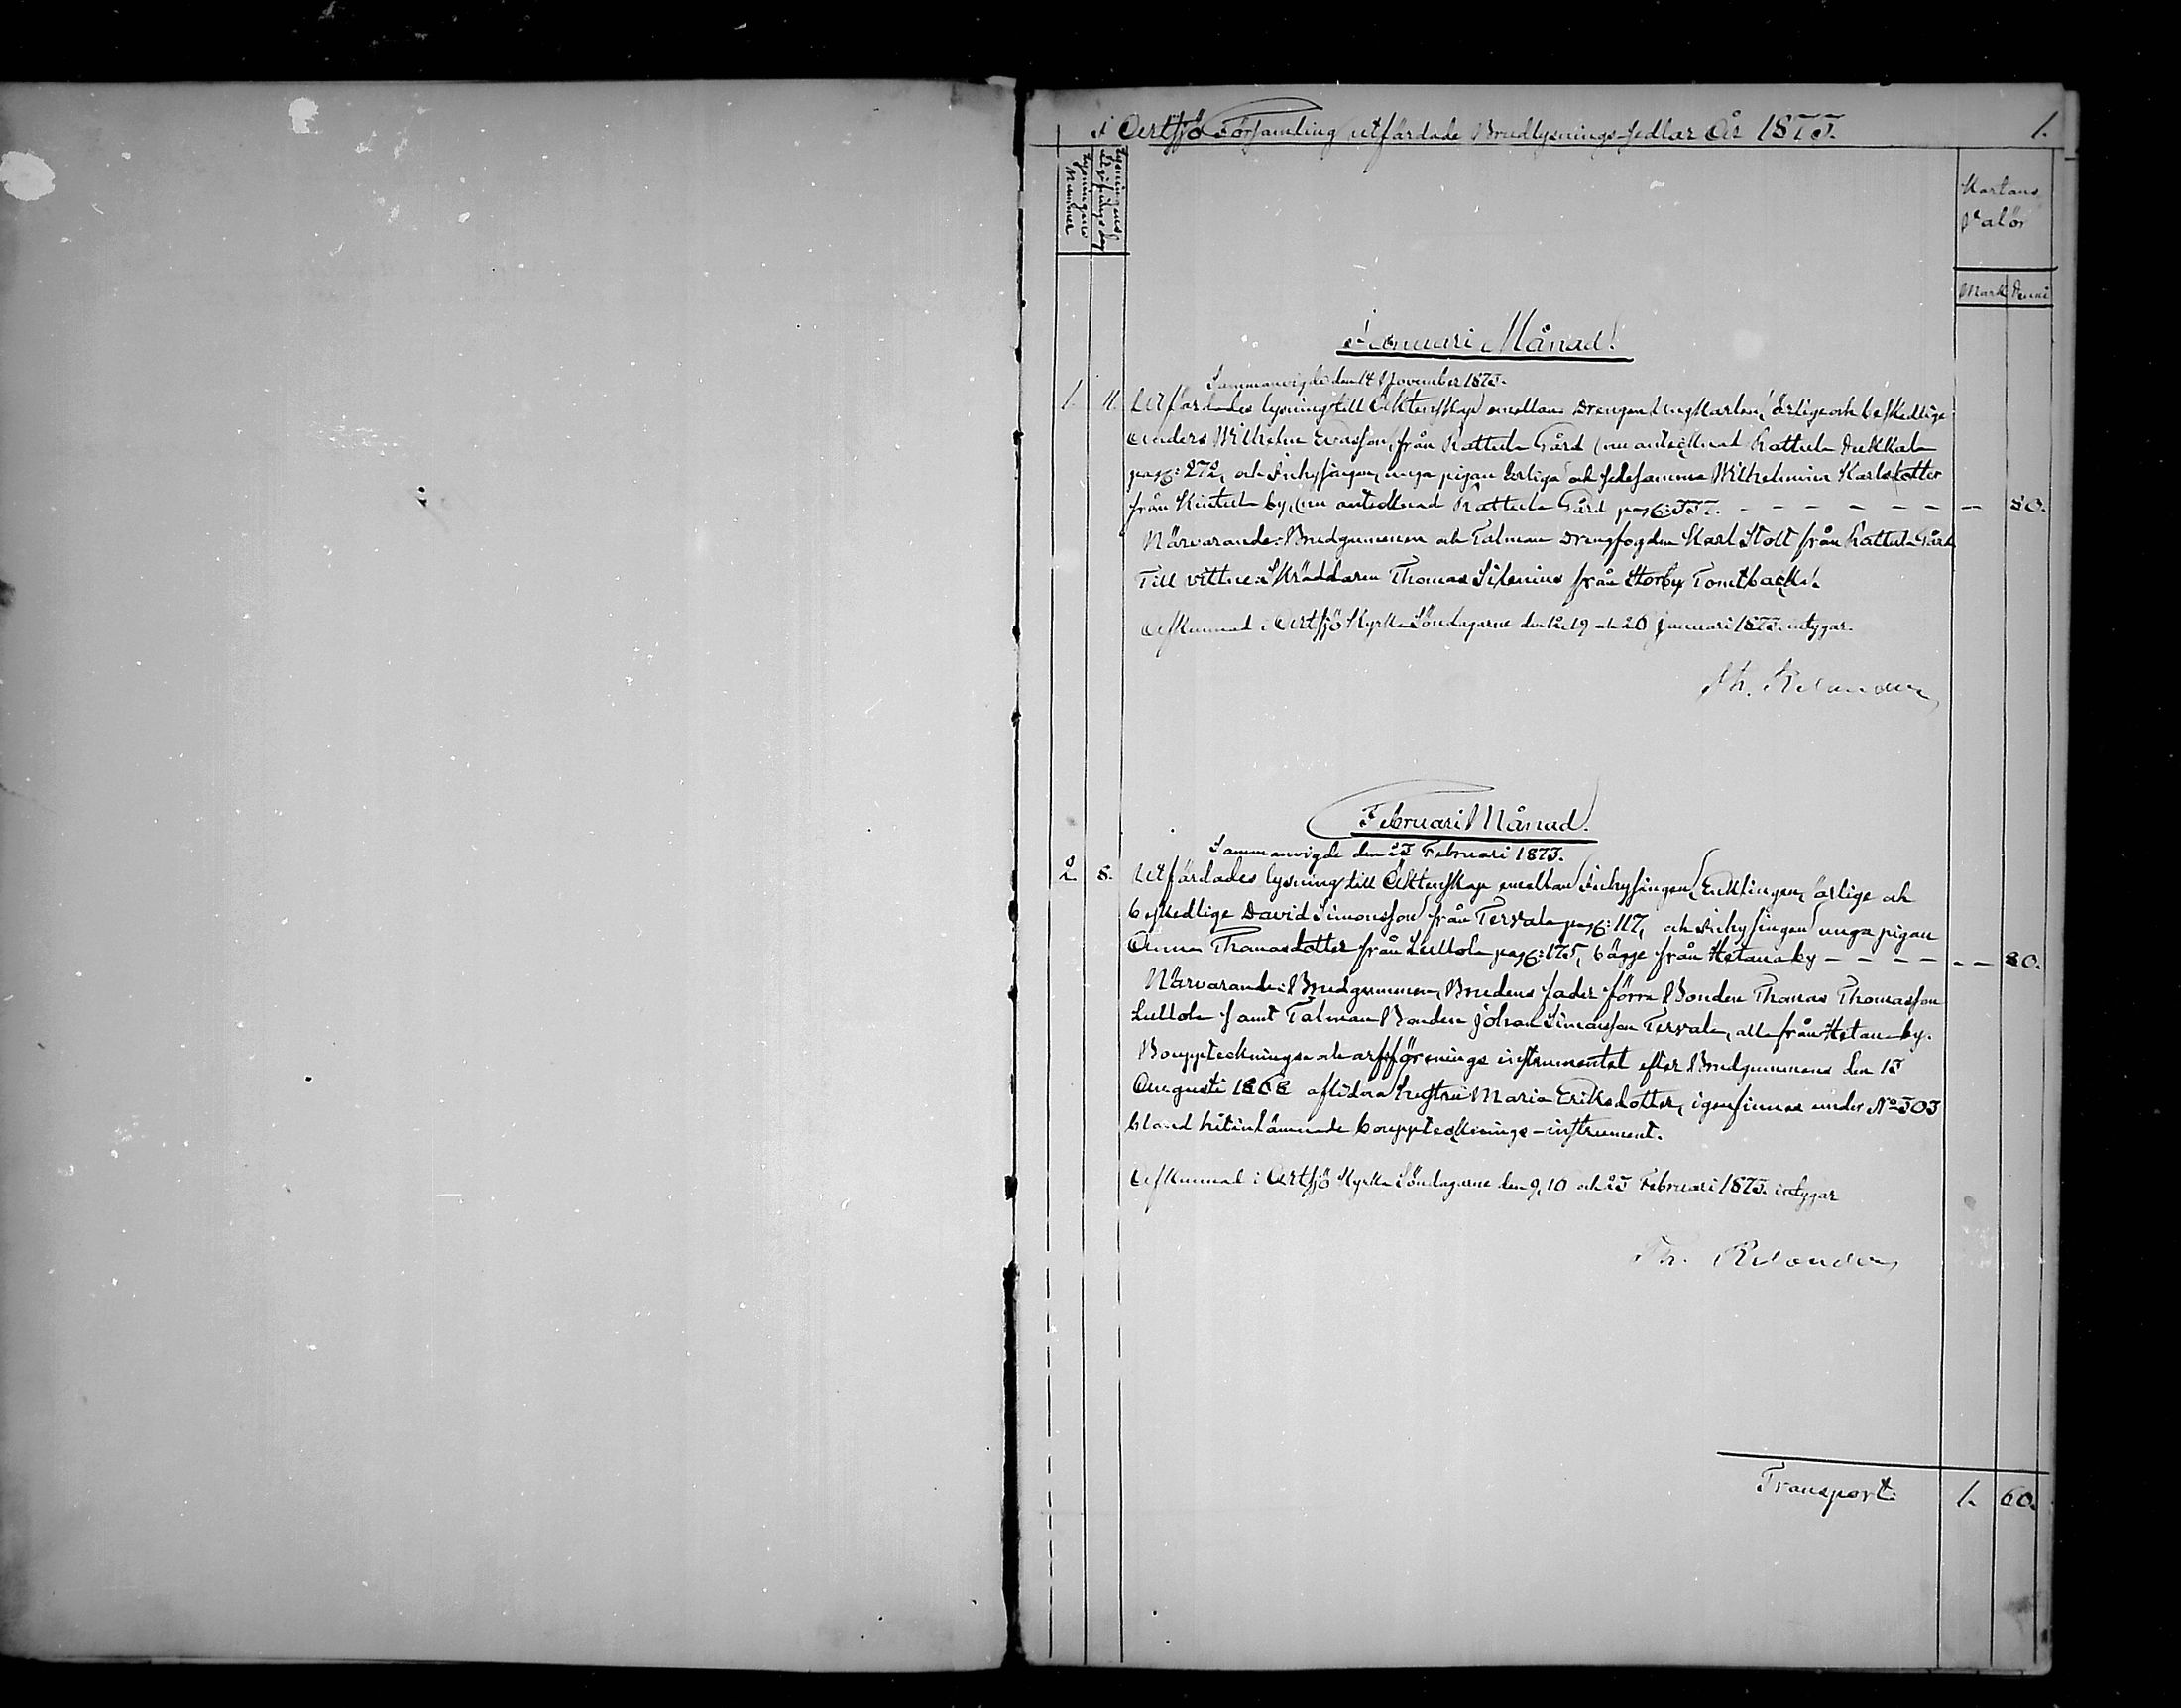 I Artsjö Församling utfärdade Brudlysnings-sedlar År 1873. 1.
Lysningens Nummer
Lysningens utgifnings dag
Kartans
Valör
Mark Penni
Januari Månad.
Sammanvigde den 14 November 1873.
1. 11. Utfärdades lysning till Äktenskap emellan Drengen Ungkarlen, ärlige och beskedlige
Anders Wilhelm Ersson från Rattula Gård (nu antecknad Rattula
pag: 272, och Inhysingen, unga pigan ärliga och sedesamma Wilhelmina Karlsdotter
från by, (nu antecknad Rattula Gård pag: 337. - - - - - - - 80.
Närvarande: Brudgummen och Talman Drengfogden Karl Stolt från Rattula Gård
Till vittne: Skräddaren Thomas Silenius från Storby Tomtbacka.
Afkunnad i Artsjö Kyrka Söndagarne den 12, 19 och 26 Januari 1873. intygar.
Th. Relander
Februari Månad.
Sammanvigde den 23 Februari 1873.
2. 8. Utfärdades lysning till Äktenskap emellan Inhysingen, Enklingen, ärlige och
beskedlige David Simonsson från Tervala pag: 117, och Inhysingen unga pigan
Anna Thomasdotter från Lullola pag: 175, bägge från Hetanaby - - - - - - 80.
Närvarande: Brudgummen, Brudens fader förra Bonden Thomas Thomasson
Lullola samt Talman Bonden Johan Simonsson Tervala, alla från Hetanaby.
Bouppteckningse och arfsförenings instrumentet efter Brudgummens den 13
Augusti 1868 aflidna hustru Maria Eriksdotter, igenfinnes under No 303
bland hitinlämnade bouppteckninge-instrument.
Afkunnad i Artsjö Kyrka Söndagarne den 9, 10 och 23 Februari 1873. intygar
Th. Relander
Transport: 1. 60.